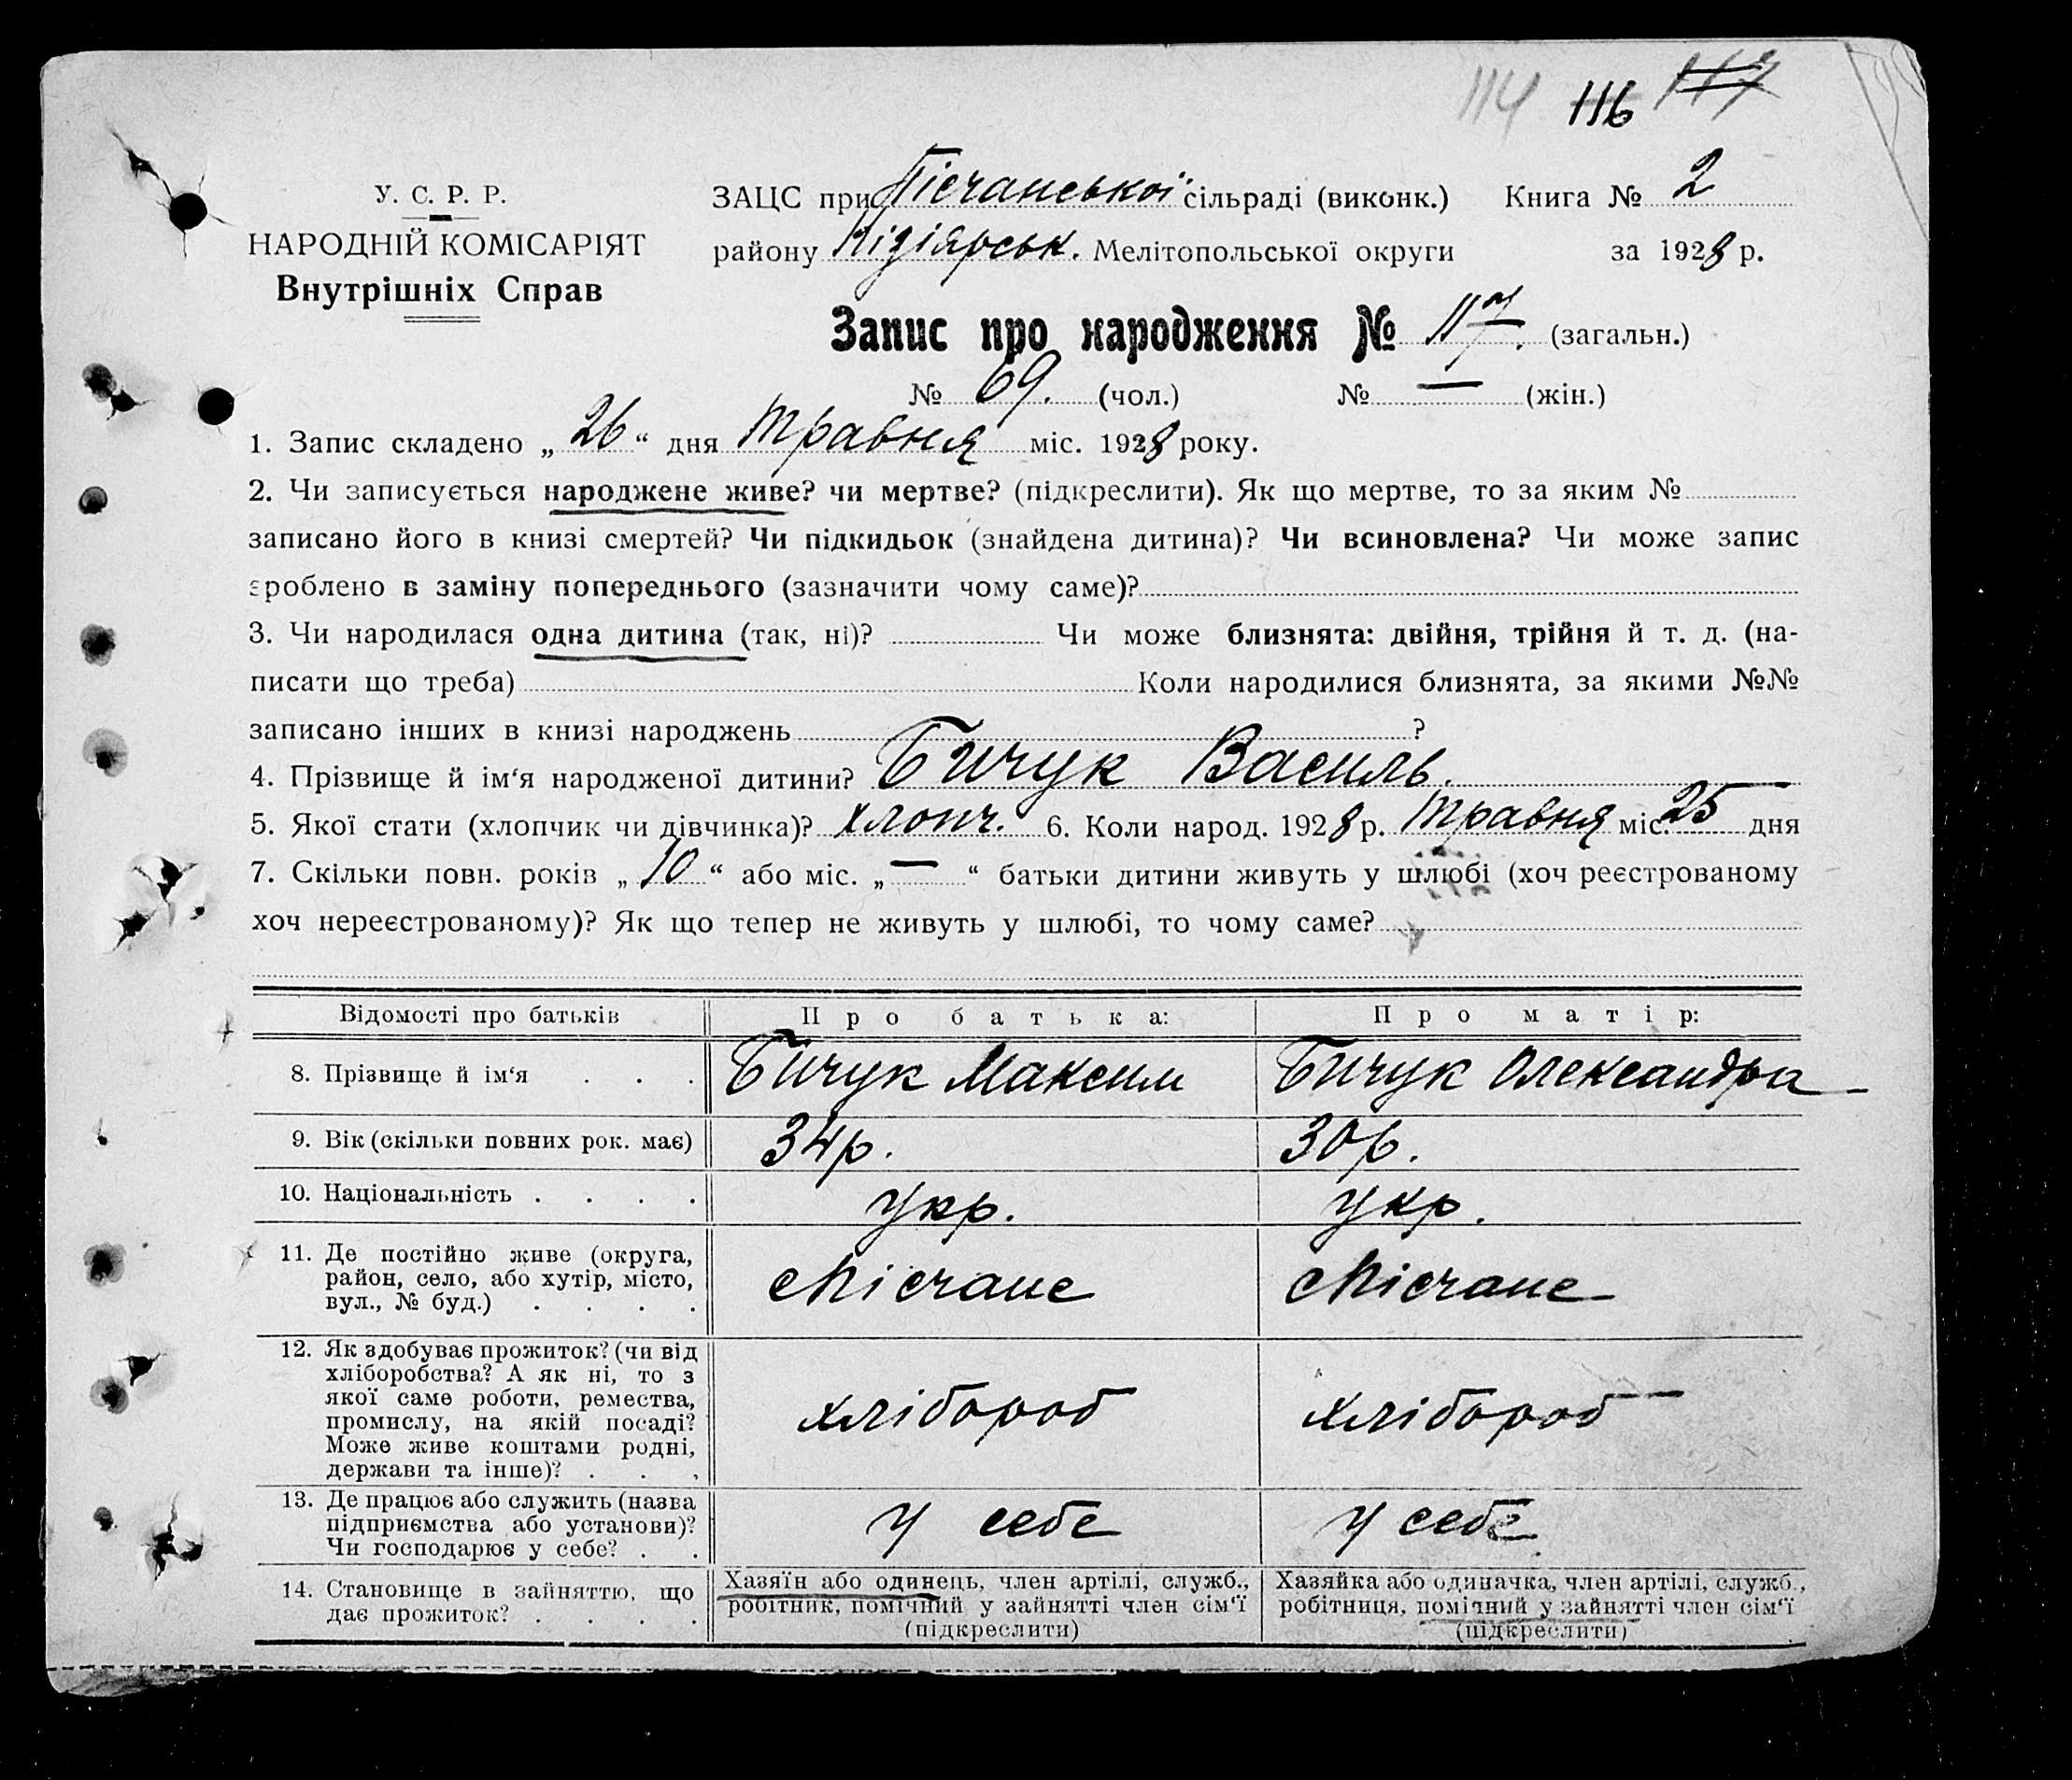 114 116 117
У. С. Р. Р.
НАРОДНІЙ КОМІСАРІЯТ
Внутрішніх Справ
ЗАЦС при Пісчанської сільраді (виконк.) Книга № 2
району Кізіярськ. Мелітопольської округи за 1928 р.
Запис про народження № 117. (загальн.)
№ 69. (чол.) № — (жін.)
1. Запис складено „ 26 “ дня Травня міс. 1928 року.
2. Чи записується народжене живе? чи мертве? (підкреслити). Як що мертве, то за яким №
записано його в книзі смертей? Чи підкидьок (знайдена дитина)? Чи всиновлена? Чи може запис
зроблено в заміну попереднього (зазначити чому саме)?
3. Чи народилася одна дитина (так, ні)? Чи може близнята: двійня, трійня й т. д. (на-
писати що треба) Коли народилися близнята, за якими №№
записано інших в книзі народжень ?
4. Прізвище й ім‘я народженої дитини? Бичук Василь.
5. Якої стати (хлопчик чи дівчинка)? хлопч. 6. Коли народ. 1928 р. Травня міс. 25 дня
7. Скільки повн. років „ 10 “ або міс. „ — “ батьки дитини живуть у шлюбі (хоч реєстрованому
хоч нереєстрованому)? Як що тепер не живуть у шлюбі, то чому саме?
Відомості про батьків Про батька: Про матір:
8. Прізвище й ім‘я . . . Бичук Максим Бичук Олександра
9. Вік (скільки повних рок. має) 34 р. 30 р.
10. Національність . . . . укр. укр.
11. Де постійно живе (округа,
район, село, або хутір, місто,
вул., № буд.) . . . .
с Пісчане с Пісчане
12. Як здобуває прожиток? (чи від
хліборобства? А як ні, то з
якої саме роботи, ремества,
промислу, на якій посаді?
Може живе коштами родні,
держави та інше)? . . .
хлібороб хлібороб
13. Де працює або служить (назва
підприємства або установи)?
Чи господарює у себе? . .
у себе у себе
14. Становище в зайняттю, що
дає прожиток? . . . .
Хазяїн або одинець, член артілі, служб.,
робітник, помічний у зайнятті член сім‘ї
(підкреслити)
Хазяйка або одиначка, член артілі, служб.,
робітниця, помічний у зайнятті член сім‘ї
(підкреслити)